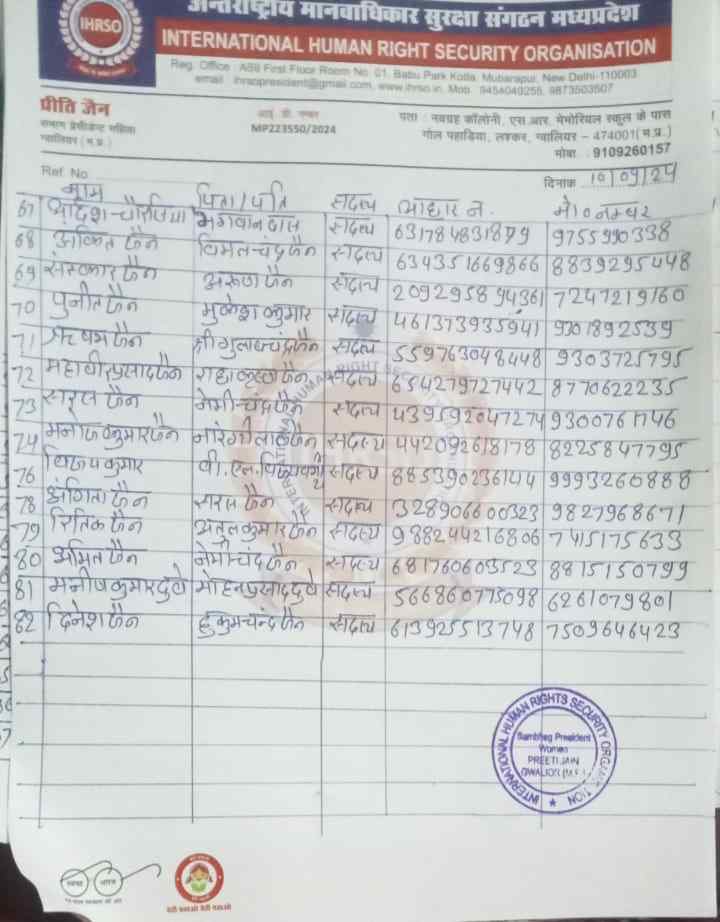 IHRSO
अन्तर्राष्ट्रीय मानवाधिकार सुरक्षा संगठन मध्यप्रदेश
INTERNATIONAL HUMAN RIGHT SECURITY ORGANISATION
Reg. Office : AB8 First Floor Room No. 01, Babu Park Kotla, Mubarapur, New Delhi-110003
email : ihrsopresident@gmail.com, www.ihrso.in, Mob. 9454049255, 9873503507
प्रीति जैन
सम्भाग प्रेसीडेन्ट महिला
ग्वालियर (म.प्र.)
आई. डी. नम्बर
MP223550/2024
पता : नवग्रह कॉलोनी, एस.आर. मेमोरियल स्कूल के पास
गोल पहाडिया, लश्कर, ग्वालियर – 474001(म.प्र.)
मोबा. : 9109260157
Ref. No.
दिनांक 10/09/24
नाम पिता/पति सदस्य आधार नं. मो० नम्बर
67 आदेश चौरसिया भगवान दास सदस्य 631784831879 9755990338
68 अंकित जैन विमलचंद्र जैन सदस्य 634351669866 8839295448
69 संस्कार जैन अरुण जैन सदस्य 209295894361 7247219160
70 पुनीत जैन मुकेश कुमार सदस्य 461373935941 9301892539
71 ऋषभ जैन श्री गुलाबचंद्र जैन सदस्य 559763048448 9303725795
72 महावीर प्रसाद जैन जैन सदस्य 654279727442 8770622235
73 सरस जैन नेमीचंद्र जैन सदस्य 439592047274 9300761746
74 मनोज कुमार जैन नारंगीलाल जैन सदस्य 442092618178 8225847795
76 विजय कुमार वी.एल. विजयवर्गीय सदस्य 885390236144 9993260888
78 अंगिता जैन सरस जैन सदस्य 328906600323 9827968671
79 रितिक जैन अतुल कुमार जैन सदस्य 988244216806 7415175633
80 अमित जैन नेमीचंद जैन सदस्य 681760603523 8815150799
81 मनोज कुमार दुवे मोहन प्रसाद दुवे सदस्य 566860773098 6261079801
82 दिनेश जैन हुकुमचन्द जैन सदस्य 613925513748 7509646423
INTERNATIONAL HUMAN RIGHTS SECURITY ORGANISATION
Sambhag President
Women
PREETI JAIN
GWALIOR (M.P.)
स्वच्छ भारत
एक कदम स्वच्छता की ओर
बेटी बचाओ बेटी पढ़ाओ